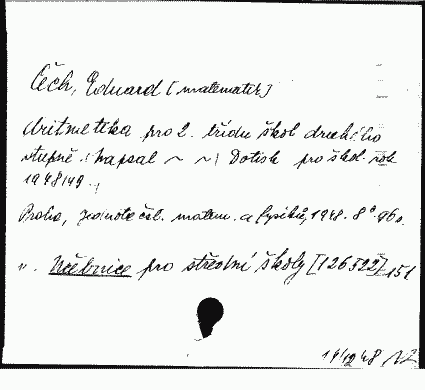 Čech, Eduard [matematik]
Aritmetika pro 2. třídu škol druhého
stupně. (Napsal ~ ~) Dotisk pro škol. rok
1948/49.
Praha, Jednota čsl. matem. a fysiků, 1948. 8° 96 s.
Učebnice pro střední školy [126522] 151
14/12 48